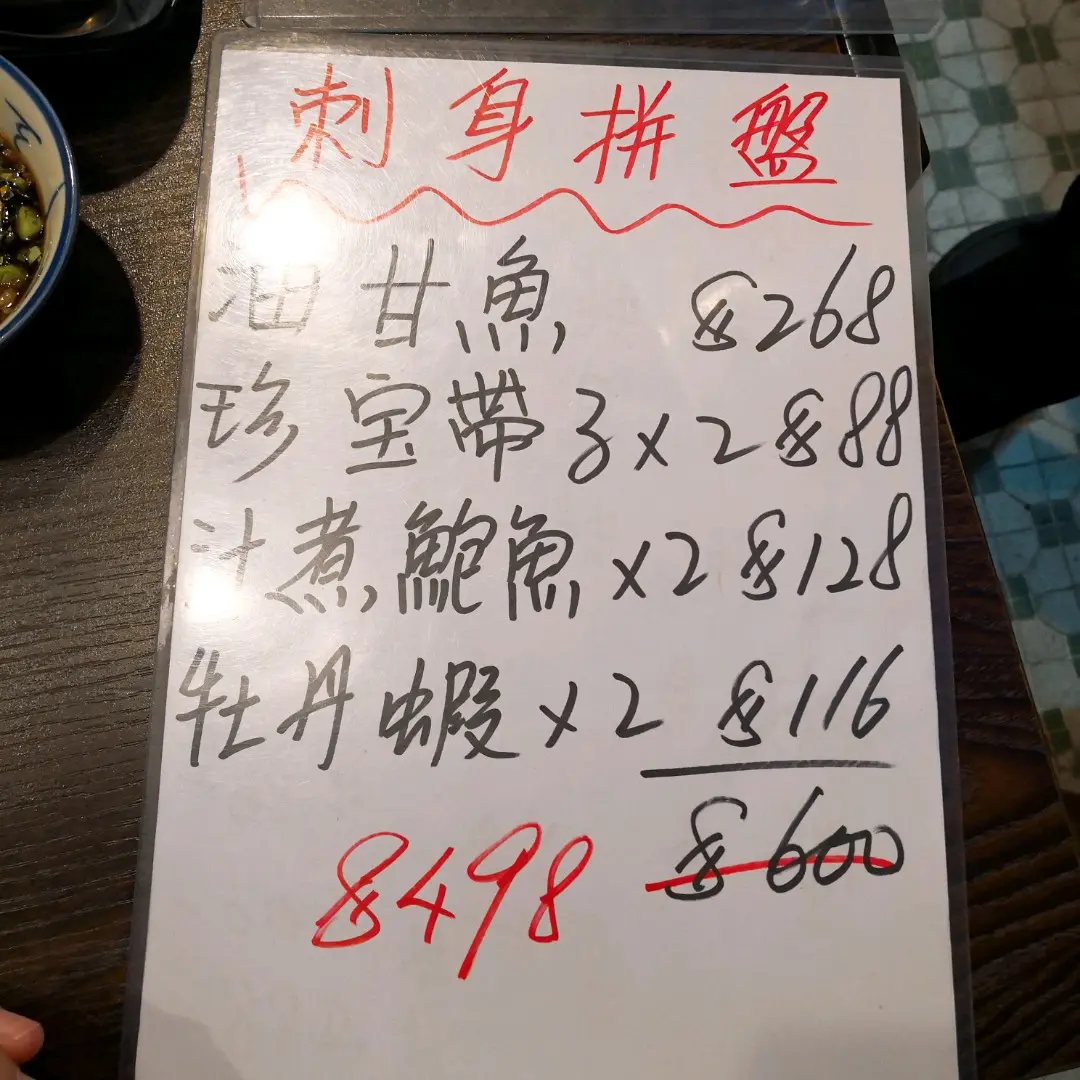 刺身拼盤
油甘魚 $268
珍宝帶子×2 $88
汁煮鮑魚×2 $128
牡丹蝦×2 $116
$600
$498